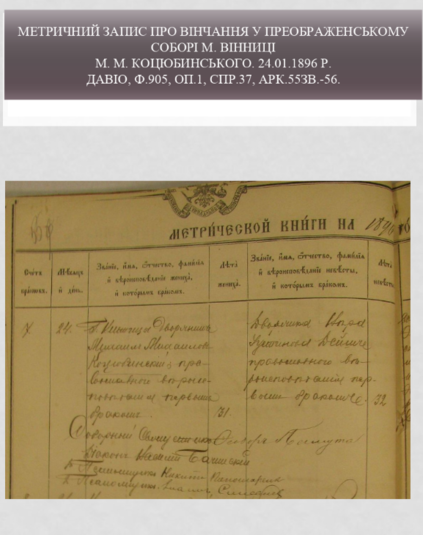 МЕТРИЧНИЙ ЗАПИС ПРО ВІНЧАННЯ У ПРЕОБРАЖЕНСЬКОМУ
СОБОРІ М. ВІННИЦІ
М. М. КОЦЮБИНСЬКОГО. 24.01.1896 Р.
ДАВІО, Ф.905, ОП.1, СПР.37, АРК.55ЗВ.-56.
МЕТРИЧЕСКОЙ КНИГИ НА 1896
Счетъ браковъ.
Мѣсяцъ и день.
Званіе, имя, отчество, фамилія и вѣроисповѣданіе жениха, и которымъ бракомъ.
Лѣта жениха.
Званіе, имя, отчество, фамилія и вѣроисповѣданіе невѣсты, и которымъ бракомъ.
Лѣта невѣсты.
24.
Дворянинъ
Михаилъ Михайловъ
Коцюбинскій, пра-
вославнаго вѣроис-
повѣданія, первымъ
бракомъ. 31.
Дворянка Вѣра
Устинова Дейша,
православнаго вѣ-
роисповѣданія, пер-
вымъ бракомъ. 32.